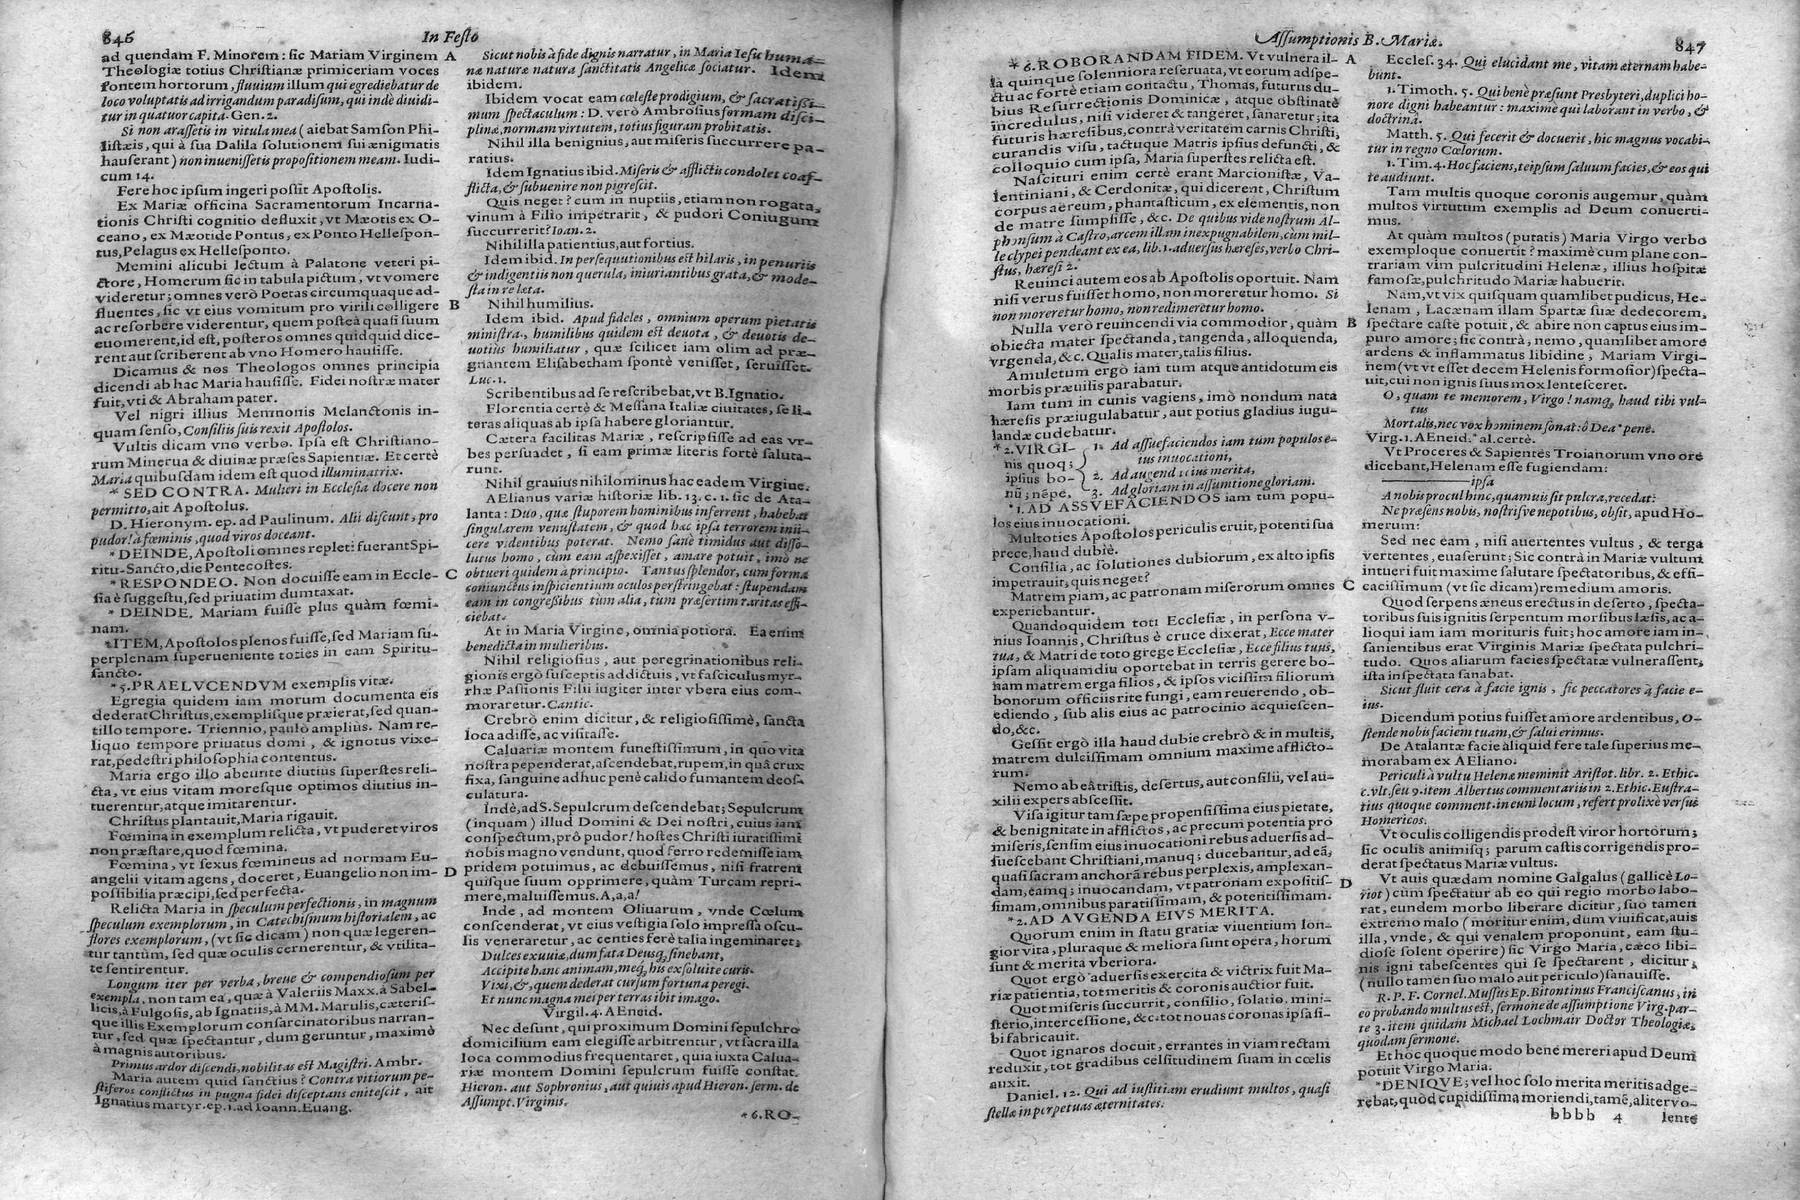 846
In Festo
ad quendam F. Minorem: sic Mariam Virginem
Theologiæ totius Christianæ primiceriam voces
fontem hortorum, fluuium illum qui egrediebatur de
loco voluptatis ad irrigandum paradisum, qui indè diuidi-
tur in quatuor capita. Gen. 2.
Si non arassetis in vitula mea (aiebat Samson Phi-
listæis, qui à sua Dalila solutionem sui ænigmatis
hauserant) non inuenissetis propositionem meam. Iudi-
cum 14.
Fere hoc ipsum ingeri possit Apostolis.
Ex Mariæ officina Sacramentorum Incarna-
tionis Christi cognitio defluxit, vt Mæotis ex O-
ceano, ex Mæotide Pontus, ex Ponto Hellespon-
tus, Pelagus ex Hellesponto.
Memini alicubi lectum à Palatone veteri pi-
ctore, Homerum sic in tabula pictum, vt vomere
videretur; omnes verò Poetas circumquaque ad-
fluentes, sic vt eius vomitum pro virili colligere
ac resorbere viderentur, quem posteà quasi suum
euomerent, id est, posteros omnes quidquid dice-
rent aut scriberent ab vno Homero hausisse.
Dicamus & nos Theologos omnes principia
dicendi ab hac Maria hausisse. Fidei nostræ mater
fuit, vti & Abraham pater.
Vel nigri illius Memnonis Melanctonis in-
quam senso, Consiliis suis rexit Apostolos.
Vultis dicam vno verbo. Ipsa est Christiano-
rum Minerua & diuinæ præses Sapientiæ. Et certè
Maria quibusdam idem est quod illuminatrix.
* SED CONTRA. Mulieri in Ecclesia docere non
permitto, ait Apostolus.
D. Hieronym. ep. ad Paulinum. Alii discunt, pro
pudor! à fœminis, quod viros doceant.
* DEINDE, Apostoli omnes repleti fuerant Spi-
ritu-Sancto, die Pentecostes.
* RESPONDEO. Non docuisse eam in Eccle-
sia è suggestu, sed priuatim dumtaxat.
* DEINDE. Mariam fuisse plus quàm fœmi-
nam.
* ITEM, Apostolos plenos fuisse, sed Mariam su-
perplenam superueniente toties in eam Spiritu-
sancto.
* 5. PRAELVCENDVM exemplis vitæ.
Egregia quidem iam morum documenta eis
dederat Christus, exemplisque præierat, sed quan-
tillo tempore. Triennio, paulò amplius. Nam re-
liquo tempore priuatus domi, & ignotus vixe-
rat, pedestri philosophia contentus.
Maria ergo illo abeunte diutius superstes reli-
cta, vt eius vitam moresque optimos diutius in-
tuerentur, atque imitarentur.
Christus plantauit, Maria rigauit.
Fœmina in exemplum relicta, vt puderet viros
non præstare, quod fœmina.
Fœmina, vt sexus fœmineus ad normam Eu-
angelii vitam agens, doceret, Euangelio non im-
possibilia præcipi, sed perfecta.
Relicta Maria in speculum perfectionis, in magnum
speculum exemplorum, in Catechismum historialem, ac
flores exemplorum, (vt sic dicam) non quæ legeren-
tur tantùm, sed quæ oculis cernerentur, & vtilita-
te sentirentur.
Longum iter per verba, breue & compendiosum per
exempla, non tam ea, quæ à Valeriis Maxx. à Sabel-
licis, à Fulgosis, ab Ignatiis, à MM. Marulis, cæteris-
que illis Exemplorum consarcinatoribus narran-
tur, sed quæ spectantur, dum geruntur, maximè
à magnis autoribus.
Primus ardor discendi, nobilitas est Magistri. Ambr.
Maria autem quid sanctius? Contra vitiorum pe-
stiferos conflictus in pugna fidei disceptans enitescit, ait
Ignatius martyr. ep. 1. ad Ioann. Euang.
A
B
C
D
Sicut nobis à fide dignis narratur, in Maria Iesu huma-
næ naturæ natura sanctitatis Angelicæ sociatur. Idem
ibidem.
Ibidem vocat eam cœleste prodigium, & sacratissi-
mum spectaculum: D. verò Ambrosius formam disci-
plinæ, normam virtutem, totius figuram probitatis.
Nihil illa benignius, aut miseris succurrere pa-
ratius.
Idem Ignatius ibid. Miseris & afflictis condolet coaf-
flicta, & subuenire non pigrescit.
Quis neget? cum in nuptiis, etiam non rogata,
vinum à Filio impetrarit, & pudori Coniugum
succurrerit? Ioan. 2.
Nihil illa patientius, aut fortius.
Idem ibid. In persequutionibus est hilaris, in penuriis
& indigentiis non querula, iniuriantibus grata, & mode-
sta in re læta.
Nihil humilius.
Idem ibid. Apud fideles, omnium operum pietatis
ministra, humilibus quidem est deuota, & deuotis de-
uotius humiliatur, quæ scilicet iam olim ad præ-
gnantem Elisabetham spontè venisset, seruisset.
Luc. 1.
Scribentibus ad se rescribebat, vt B. Ignatio.
Florentia certè & Messana Italiæ ciuitates, se li-
teras aliquas ab ipsa habere gloriantur.
Cætera facilitas Mariæ, rescripsisse ad eas vr-
bes persuadet, si eam primæ literis fortè saluta-
runt.
Nihil grauius nihilominus hac eadem Virgine.
AElianus variæ historiæ lib. 13. c. 1. sic de Ata-
lanta: Duo, quæ stuporem hominibus inferrent, habebat
singularem venustatem, & quod hac ipsa terrorem inii-
cere videntibus poterat. Nemo sanè timidus aut disso-
lutus homo, cùm eam aspexisset, amare potuit, imò ne
obtueri quidem à principio. Tantus splendor, cum forma
coniunctus inspicientium oculos perstringebat: stupendam
eam in congressibus tùm alia, tùm præsertim raritas effi-
ciebat.
At in Maria Virgine, omnia potiora. Ea enim
benedicta in mulieribus.
Nihil religiosius, aut peregrinationibus reli-
gionis ergò susceptis addictuis, vt fasciculus myr-
rhæ Passionis Filii iugiter inter vbera eius com-
moraretur. Cantic.
Crebrò enim dicitur, & religiosissimè, sancta
loca adisse, ac visitasse.
Caluariæ montem funestissimum, in quo vita
nostra pependerat, ascendebat, rupem, in quâ crux
fixa, sanguine adhuc penè calido fumantem deos-
culatura.
Indè, ad S. Sepulcrum descendebat; Sepulcrum
(inquam) illud Domini & Dei nostri, cuius iam
conspectum, prô pudor! hostes Christi iuratissimi
nobis magno vendunt, quod ferro redemisse iam
pridem potuimus, ac debuissemus, nisi fratrem
quisque suum opprimere, quàm Turcam repri-
mere, maluissemus. A, a, a!
Inde, ad montem Oliuarum, vnde Cœlum
conscenderat, vt eius vestigia solo impressa oscu-
lis veneraretur, ac centies ferè talia ingeminaret;
Dulces exuuiæ, dum fata Deusq; sinebant,
Accipite hanc animam, meq; his exsoluite curis.
Vixi, &, quem dederat cursum fortuna peregi.
Et nunc magna mei per terras ibit imago.
Virgil. 4. AEneid.
Nec desunt, qui proximum Domini sepulchro
domicilium eam elegisse arbitrentur, vt sacra illa
loca commodius frequentaret, quia iuxta Calua-
riæ montem Domini sepulcrum fuisse constat.
Hieron. aut Sophronius, aut quiuis apud Hieron. serm. de
Assumpt. Virginis.
* 6. RO-
Assumptionis B. Mariæ.
847
* 6. ROBORANDAM FIDEM. Vt vulnera il-
la quinque solenniora reseruata, vt eorum adspe-
ctu ac fortè etiam contactu, Thomas, futurus du-
bius Resurrectionis Dominicæ, atque obstinatè
incredulus, nisi videret & tangeret, sanaretur; ita
futuris hæresibus, contrà veritatem carnis Christi,
curandis visu, tactuque Matris ipsius defuncti, &
colloquio cum ipsa, Maria superstes relicta est.
Nascituri enim certè erant Marcionistæ, Va-
lentiniani, & Cerdonitæ, qui dicerent, Christum
corpus aëreum, phantasticum, ex elementis, non
de matre sumpsisse, &c. De quibus vide nostrum Al-
phonsum à Castro, arcem illam inexpugnabilem, cùm mil-
le clypei pendeant ex ea, lib. 1. aduersus hæreses, verbo Chri-
stus, hæresi 2.
Reuinci autem eos ab Apostolis oportuit. Nam
nisi verus fuisset homo, non moreretur homo. Si
non moreretur homo, non redimeretur homo.
Nulla verò reuincendi via commodior, quàm
obiecta mater spectanda, tangenda, alloquenda,
vrgenda, &c. Qualis mater, talis filius.
Amuletum ergò iam tum atque antidotum eis
morbis præuilis parabatur.
Iam tum in cunis vagiens, imò nondum nata
hæresis præiugulabatur, aut potius gladius iugu-
landæ cudebatur.
* 2. VIRGI-
nis quoq;
ipsius bo-
nũ; nẽpe,
1. Ad assuefaciendos iam tùm populos e-
ius inuocationi,
2. Ad augendá eius merita,
3. Ad gloriam in assumtione gloriam.
* 1. AD ASSVEFACIENDOS iam tum popu-
los eius inuocationi.
Multoties Apostolos periculis eruit, potenti sua
prece, haud dubiè.
Consilia, ac solutiones dubiorum, ex alto ipsis
impetrauit; quis neget?
Matrem piam, ac patronam miserorum omnes
experiebantur.
Quandoquidem toti Ecclesiæ, in persona v-
nius Ioannis, Christus è cruce dixerat, Ecce mater
tua, & Matri de toto grege Ecclesiæ, Ecce filius tuus,
ipsam aliquamdiu oportebat in terris gerere bo-
nam matrem erga filios, & ipsos vicissim filiorum
bonorum officiis ritè fungi, eam reuerendo, ob-
ediendo, sub alis eius ac patrocinio acquiescen-
do, &c.
Gessit ergò illa haud dubie crebrò & in multis,
matrem dulcissimam omnium maxime afflicto-
rum.
Nemo ab eâ tristis, desertus, aut consilii, vel au-
xilii expers abscessit.
Visa igitur tam sæpe propensissima eius pietate,
& benignitate in afflictos, ac precum potentia pro
miseris, sensim eius inuocationi rebus aduersis ad-
suescebant Christiani, manuq; ducebantur, ad eã,
quasi sacram anchorã rebus perplexis, amplexan-
dam, eamq; inuocandam, vt patronam expositis-
simam, omnibus paratissimam, & potentissimam.
* 2. AD AVGENDA EIVS MERITA.
Quorum enim in statu gratiæ viuentium lon-
gior vita, pluraque & meliora sunt opera, horum
sunt & merita vberiora.
Quot ergò aduersis exercita & victrix fuit Ma-
riæ patientia, tot meritis & coronis auctior fuit.
Quot miseris succurrit, consilio, solatio, mini-
sterio, intercessione, &c. tot nouas coronas ipsa si-
bi fabricauit.
Quot ignaros docuit, errantes in viam rectam
reduxit, tot gradibus celsitudinem suam in cœlis
auxit.
Daniel. 12. Qui ad iustitiam erudiunt multos, quasi
stellæ in perpetuas æternitates.
A
B
C
D
Eccles. 34. Qui elucidant me, vitam æternam habe-
bunt.
1. Timoth. 5. Qui benè præsunt Presbyteri, duplici ho-
nore digni habeantur: maxime qui laborant in verbo, &
doctrinâ.
Matth. 5. Qui fecerit & docuerit, hic magnus vocabi-
tur in regno Cœlorum.
1. Tim. 4. Hoc faciens, teipsum saluum facies, & eos qui
te audiunt.
Tam multis quoque coronis augemur, quàm
multos virtutum exemplis ad Deum conuerti-
mus.
At quàm multos (putatis) Maria Virgo verbo
exemploque conuertit? maximè cum plane con-
trariam vim pulcritudini Helenæ, illius hospitæ
famosæ, pulchritudo Mariæ habuerit.
Nam, vt vix quisquam quamlibet pudicus, He-
lenam, Lacænam illam Spartæ suæ dedecorem,
spectare castè potuit, & abire non captus eius im-
puro amore; sic contrà, nemo, quamlibet amore
ardens & inflammatus libidine, Mariam Virgi-
nem (vt vt esset decem Helenis formosior) specta-
uit, cui non ignis suus mox lentesceret.
O, quam te memorem, Virgo! namq; haud tibi vul-
tus
Mortalis, nec vox hominem sonat: ô Dea * penè.
Virg. 1. AEneid. * al. certè.
Vt Proceres & Sapientes Troianorum vno ore
dicebant, Helenam esse fugiendam:
ipsa
A nobis procul hinc, quamuis sit pulcra, recedat:
Ne præsens nobis, nostrisve nepotibus, obsit, apud Ho-
merum:
Sed nec eam, nisi auertentes vultus, & terga
vertentes, euaserunt; Sic contrà in Mariæ vultum
intueri fuit maxime salutare spectatoribus, & effi-
cacissimum (vt sic dicam) remedium amoris.
Quod serpens æneus erectus in deserto, specta-
toribus suis ignitis serpentum morsibus læsis, ac a-
lioqui iam iam morituris fuit; hoc amore iam in-
sanientibus erat Virginis Mariæ spectata pulchri-
tudo. Quos aliarum facies spectatæ vulnerassent,
ista inspectata sanabat.
Sicut fluit cera à facie ignis, sic peccatores à facie e-
ius.
Dicendum potius fuisset amore ardentibus, O-
stende nobis faciem tuam, & salui erimus.
De Atalantæ facie aliquid fere tale superius me-
morabam ex AEliano.
Periculi à vultu Helenæ meminit Aristot. libr. 2. Ethic.
c. vlt. seu 9. item Albertus commentariis in 2. Ethic. Eustra-
tius quoque comment. in eum locum, refert prolixè versus
Homericos.
Vt oculis colligendis prodest viror hortorum;
sic oculis animisq; parum castis corrigendis pro-
derat spectatus Mariæ vultus.
Vt auis quædam nomine Galgalus (gallicè Lo-
riot) cùm spectatur ab eo qui regio morbo labo-
rat, eundem morbo liberare dicitur, suo tamen
extremo malo (moritur enim, dum viuificat, auis
illa, vnde, & qui venalem proponunt, eam stu-
diose solent operire) sic Virgo Maria, cæco libi-
nis igni tabescentes qui se spectarent, dicitur,
(nullo tamen suo malo aut periculo) sanauisse.
R. P. F. Cornel. Mussus Ep. Bitontinus Franciscanus, in
eo probando multus est, sermone de assumptione Virg. par-
te 3. item quidam Michael Lochmair Doctor Theologiæ,
quodam sermone.
Et hoc quoque modo bene mereri apud Deum
potuit Virgo Maria.
* DENIQVE; vel hoc solo merita meritis adge-
rebat, quòd cupidissima moriendi, tamẽ, aliter vo-
bbbb 4
lente